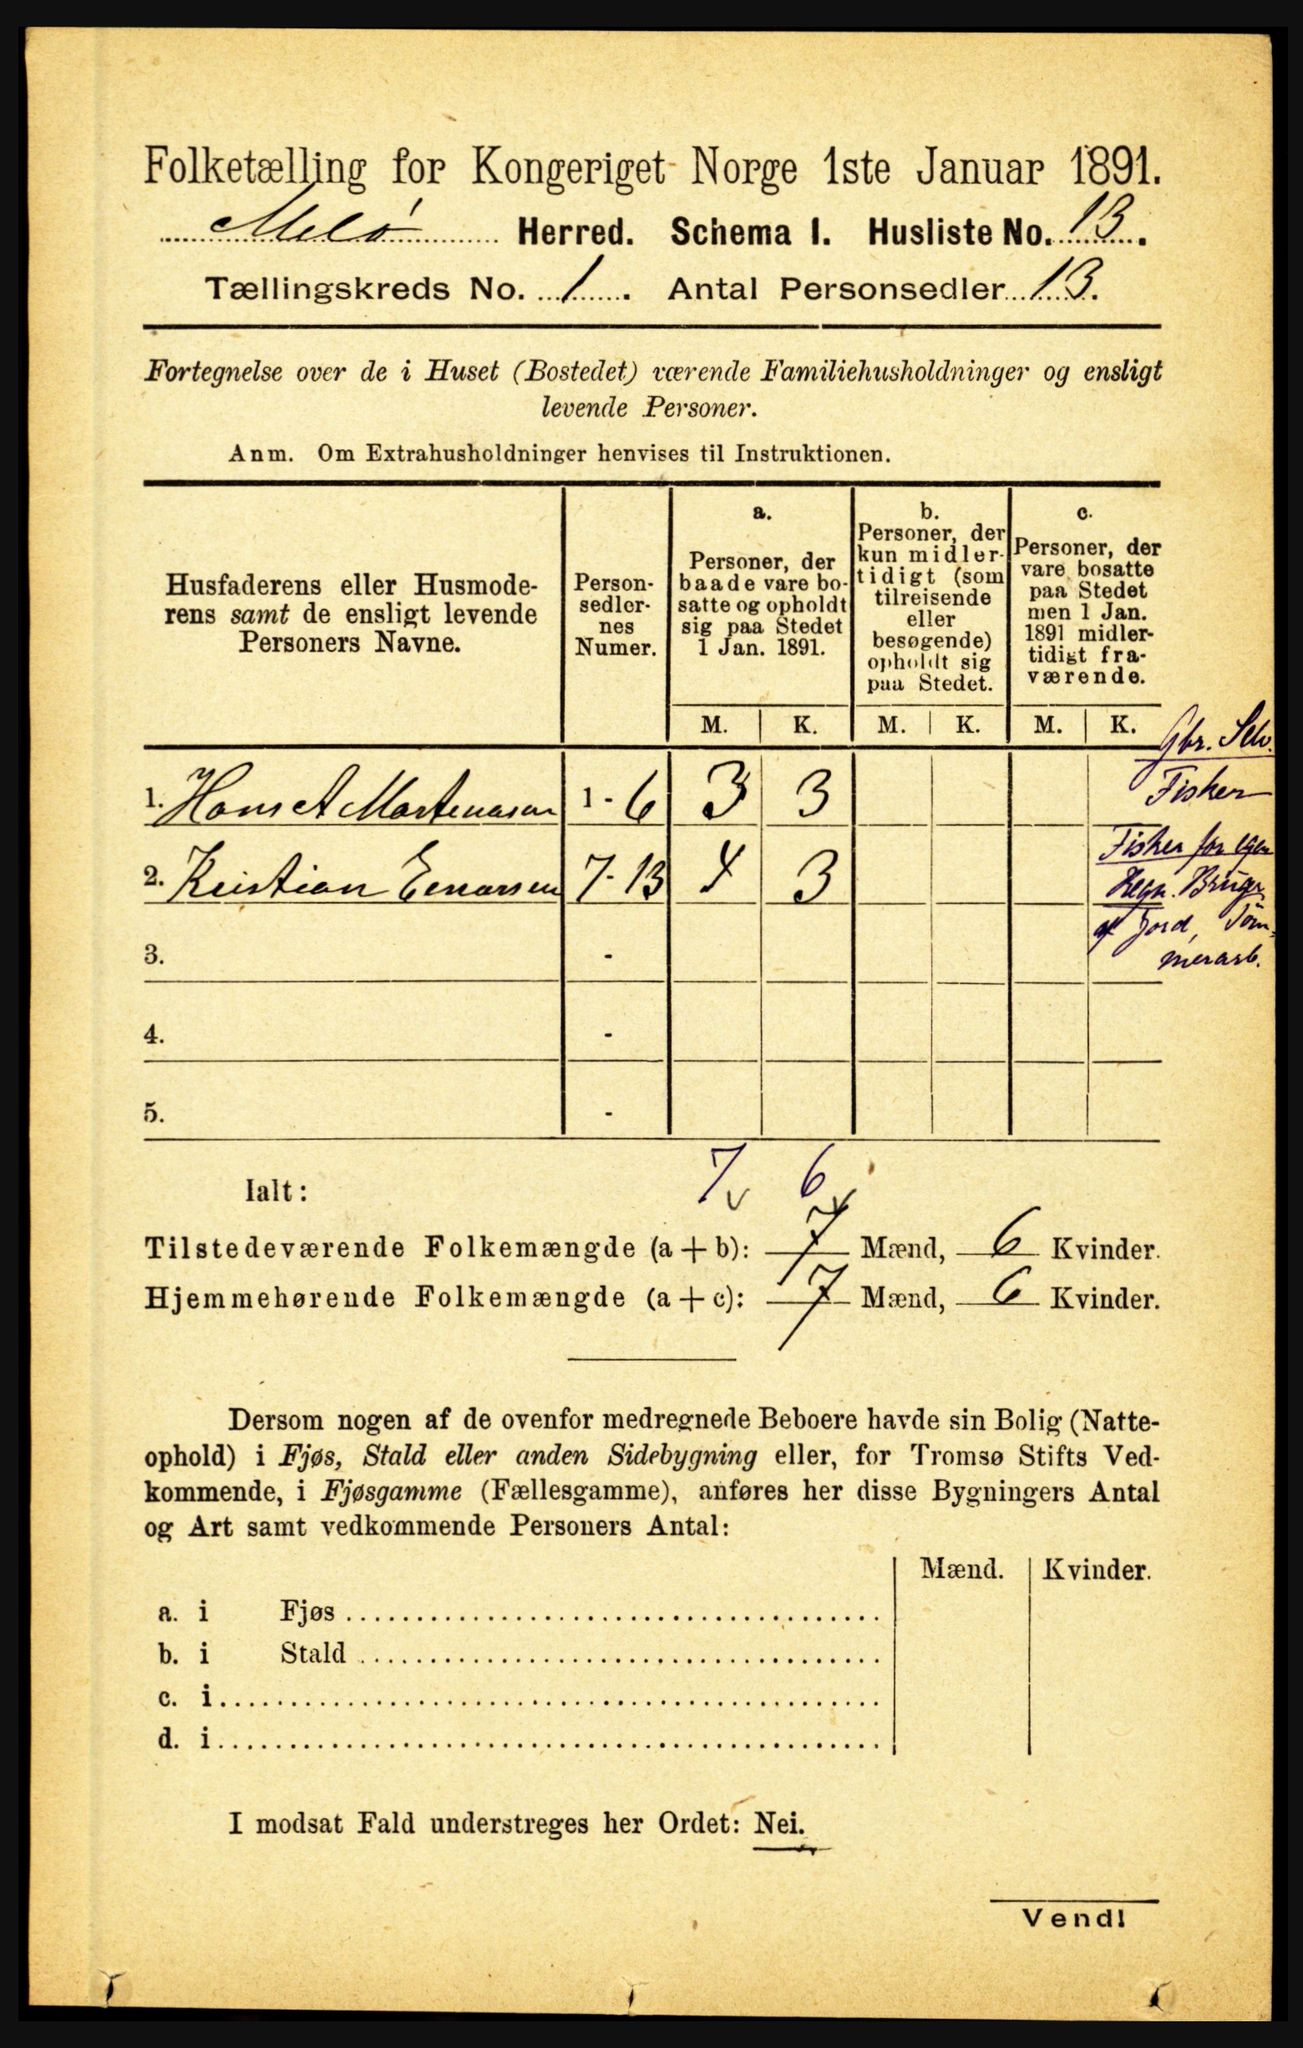 Folketælling for Kongeriget Norge 1ste Januar 1891.
Melø Herred. Schema I. Husliste No. 13.
Tællingskreds No. 1. Antal Personsedler 13.
Fortegnelse over de i Huset (Bostedet) værende Familiehusholdninger og ensligt
levende Personer.
Anm. Om Extrahusholdninger henvises til Instruktionen.
Husfaderens eller Husmode-
rens samt de ensligt levende
Personers Navne.
Person-
sedler-
nes
Numer.
a.
Personer, der
baade vare bo-
satte og opholdt
sig paa Stedet
1 Jan. 1891.
b.
Personer, der
kun midler-
tidigt (som
tilreisende
eller
besøgende)
opholdt sig
paa Stedet.
c.
Personer, der
vare bosatte
paa Stedet
men 1 Jan.
1891 midler-
tidigt fra-
værende.
M. K. M. K. M. K.
Gbr. Selv.
Fisker
1. Hans A Mortensen 1 - 6 3 3
Fisker for egen
2. Kristian Enarsen 7-13 4 3
Regn. Bruger
af Jord, Töm-
merarb.
3. -
4. -
5. -
Ialt: 7 6
Tilstedeværende Folkemængde (a+b): 7 Mænd, 6 Kvinder.
Hjemmehørende Folkemængde (a+c): 7 Mænd, 6 Kvinder.
Dersom nogen af de ovenfor medregnede Beboere havde sin Bolig (Natte-
ophold) i Fjøs, Stald eller anden Sidebygning eller, for Tromsø Stifts Ved-
kommende, i Fjøsgamme (Fællesgamme), anføres her disse Bygningers Antal
og Art samt vedkommende Personers Antal:
Mænd. Kvinder.
a. i Fjøs
b. i Stald
c. i
d. i
I modsat Fald understreges her Ordet: Nei.
Vend!